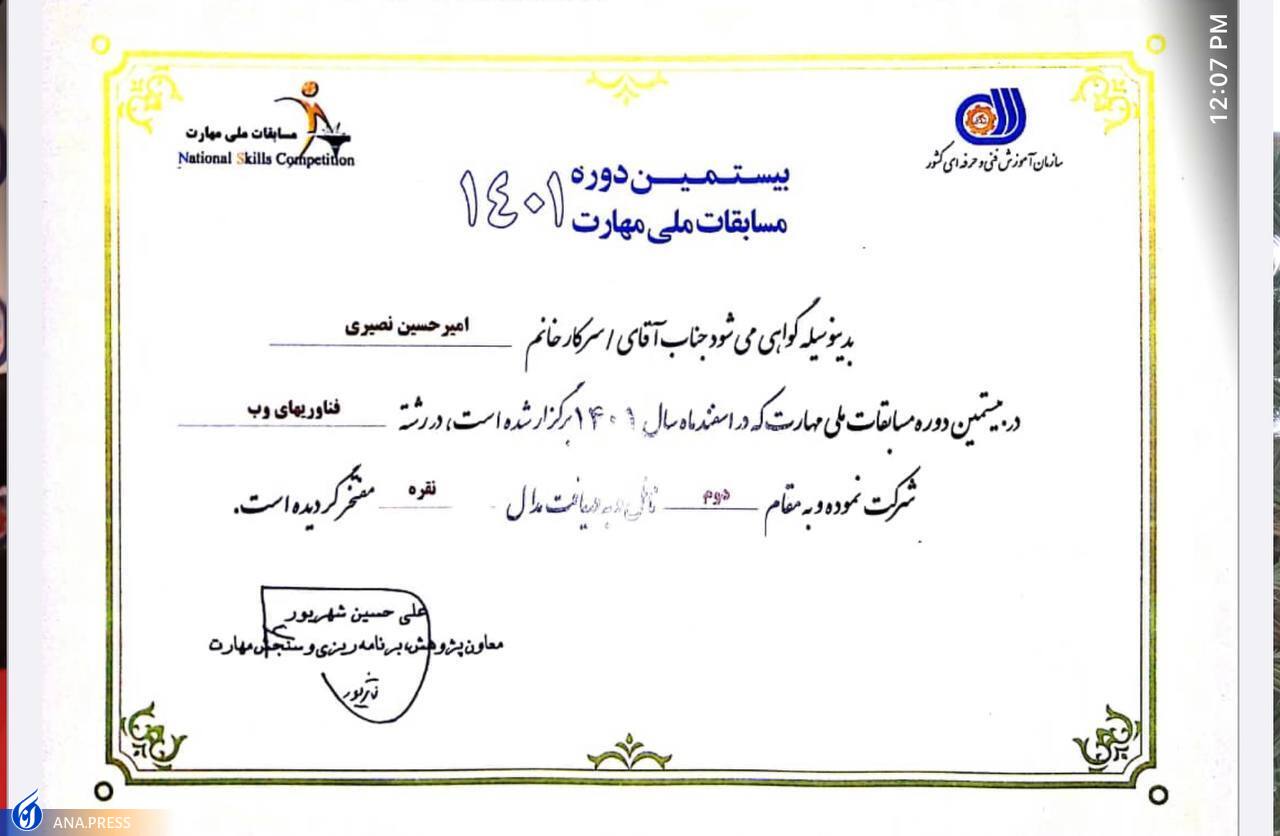 12:07 PM
سازمان آموزش فنی و حرفه ای کشور
مسابقات ملی مهارت
National Skills Competition
بیستمین دوره
مسابقات ملی مهارت ۱۴۰۱
بدینوسیله گواهی می شود جناب آقای / سرکار خانم امیرحسین نصیری
در بیستمین دوره مسابقات ملی مهارت که در اسفند ماه سال ۱۴۰۱ برگزار شده است، در رشتة فناوریهای وب
شرکت نموده و به مقام دوم نائل و به دریافت مدال نقره مفتخر گردیده است.
علی حسین شهریور
معاون پژوهش، برنامه ریزی و سنجش مهارت
ANA.PRESS